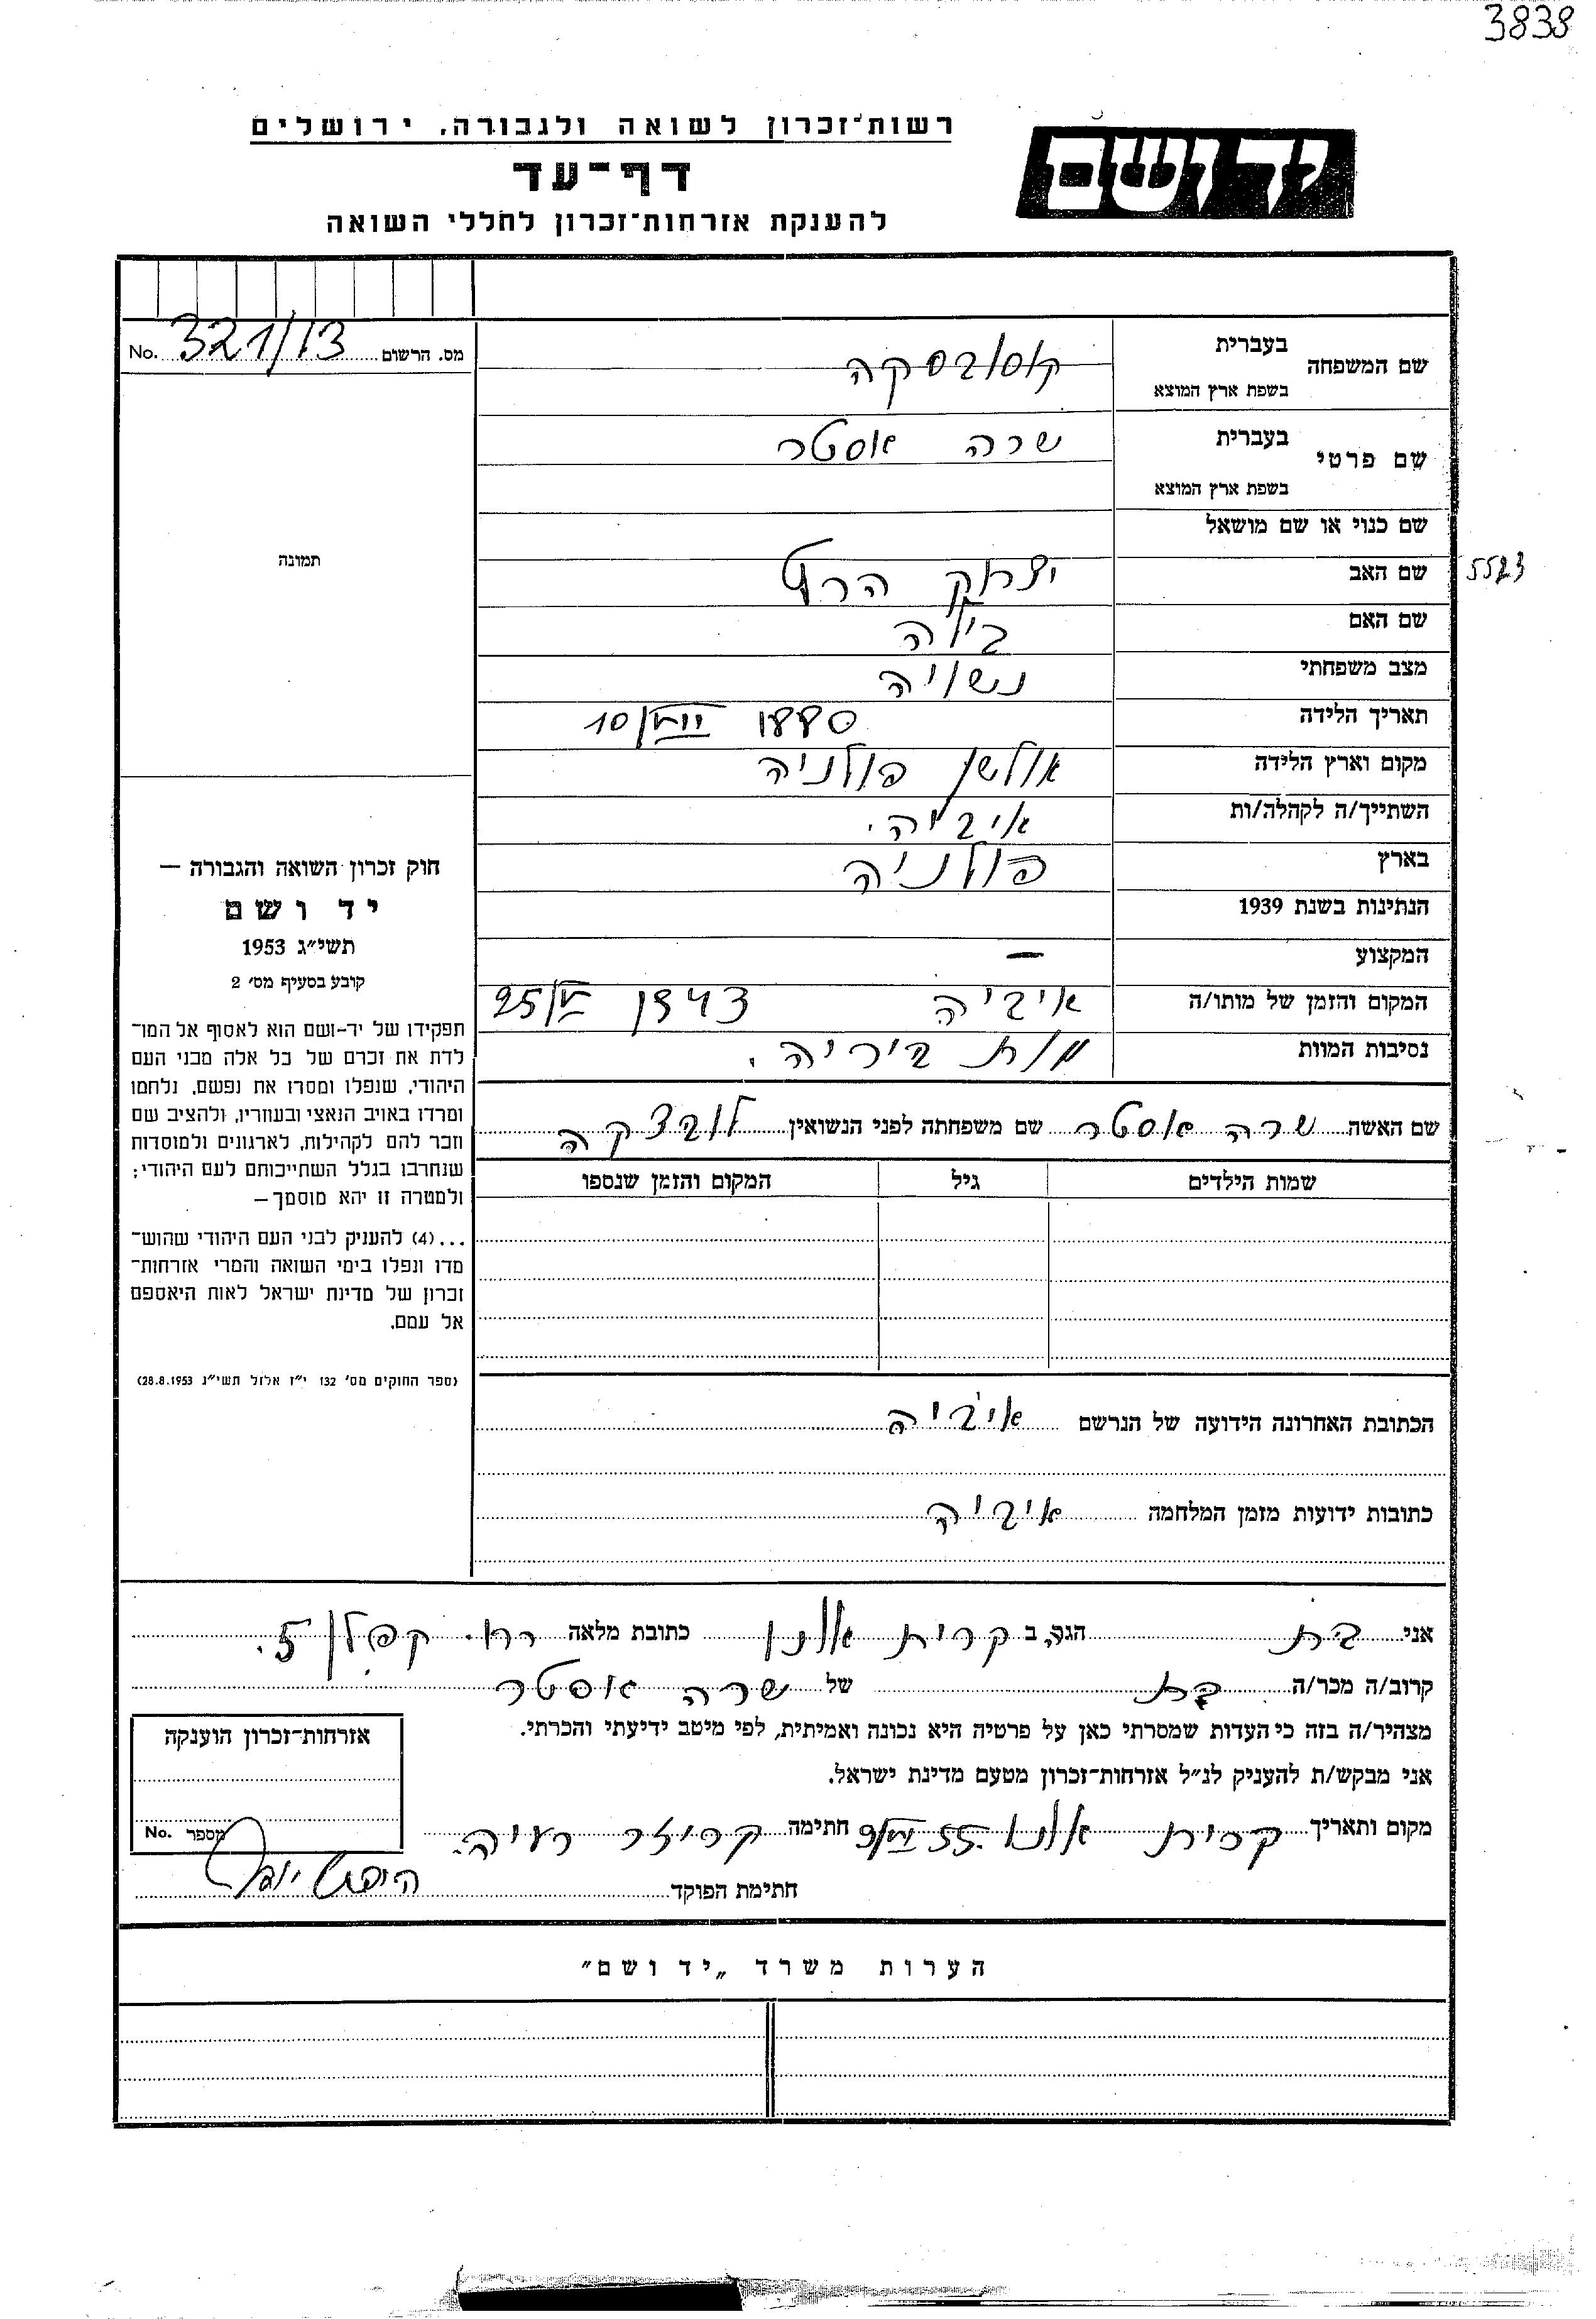 3838
יד ושם
רשות־זכרון לשואה ולגבורה, ירושלים
דף־עד
להענקת אזרחות־זכרון לחללי השואה
מס. הרשום 321/13 No.
שם המשפחה בעברית קוסובסקה
בשפת ארץ המוצא
שם פרטי בעברית שרה אסטר
בשפת ארץ המוצא
שם כנוי או שם מושאל
שם האב יצחק הרש 5523
שם האם בילה
מצב משפחתי נשויה
תאריך הלידה 1880 10/VIII
מקום וארץ הלידה אולשן פולניה
השתייך/ה לקהלה/ות איביה.
בארץ פולניה
הנתינות בשנת 1939
המקצוע —
המקום והזמן של מותו/ה איביה 1943
נסיבות המוות מות יריה.
שם האשה שרה אסטר שם משפחתה לפני הנשואין
שמות הילדים גיל המקום והזמן שנספו
הכתובת האחרונה הידועה של הנרשם איביה
כתובות ידועות מזמן המלחמה איביה
תמונה
חוק זכרון השואה והגבורה —
יד ושם
תשי״ג 1953
קובע בסעיף מס׳ 2
תפקידו של יד-ושם הוא לאסוף אל המו־
לדת את זכרם של כל אלה מבני העם
היהודי, שנפלו ומסרו את נפשם, נלחמו
ומרדו באויב הנאצי ובעוזריו, ולהציב שם
וזכר להם לקהילות, לארגונים ולמוסדות
שנחרבו בגלל השתייכותם לעם היהודי;
ולמטרה זו יהא מוסמך—
...(4) להעניק לבני העם היהודי שהוש־
מדו ונפלו בימי השואה והמרי אזרחות־
זכרון של מדינת ישראל לאות היאספם
אל עמם.
(ספר החוקים מס׳ 132 י״ז אלול תשי״ג 28.8.1953)
אני בת הגר ב קרית אונו כתובת מלאה רח. קפלן 5.
קרוב/ה מכר/ה בת של שרה אסטר
מצהיר/ה בזה כי העדות שמסרתי כאן על פרטיה היא נכונה ואמיתית, לפי מיטב ידיעתי והכרתי.
אני מבקש/ת להעניק לנ״ל אזרחות־זכרון מטעם מדינת ישראל.
מקום ותאריך קרית אונו 55. חתימה
חתימת הפוקד
אזרחות־זכרון הוענקה
מספר No.
הערות משרד „יד ושם״